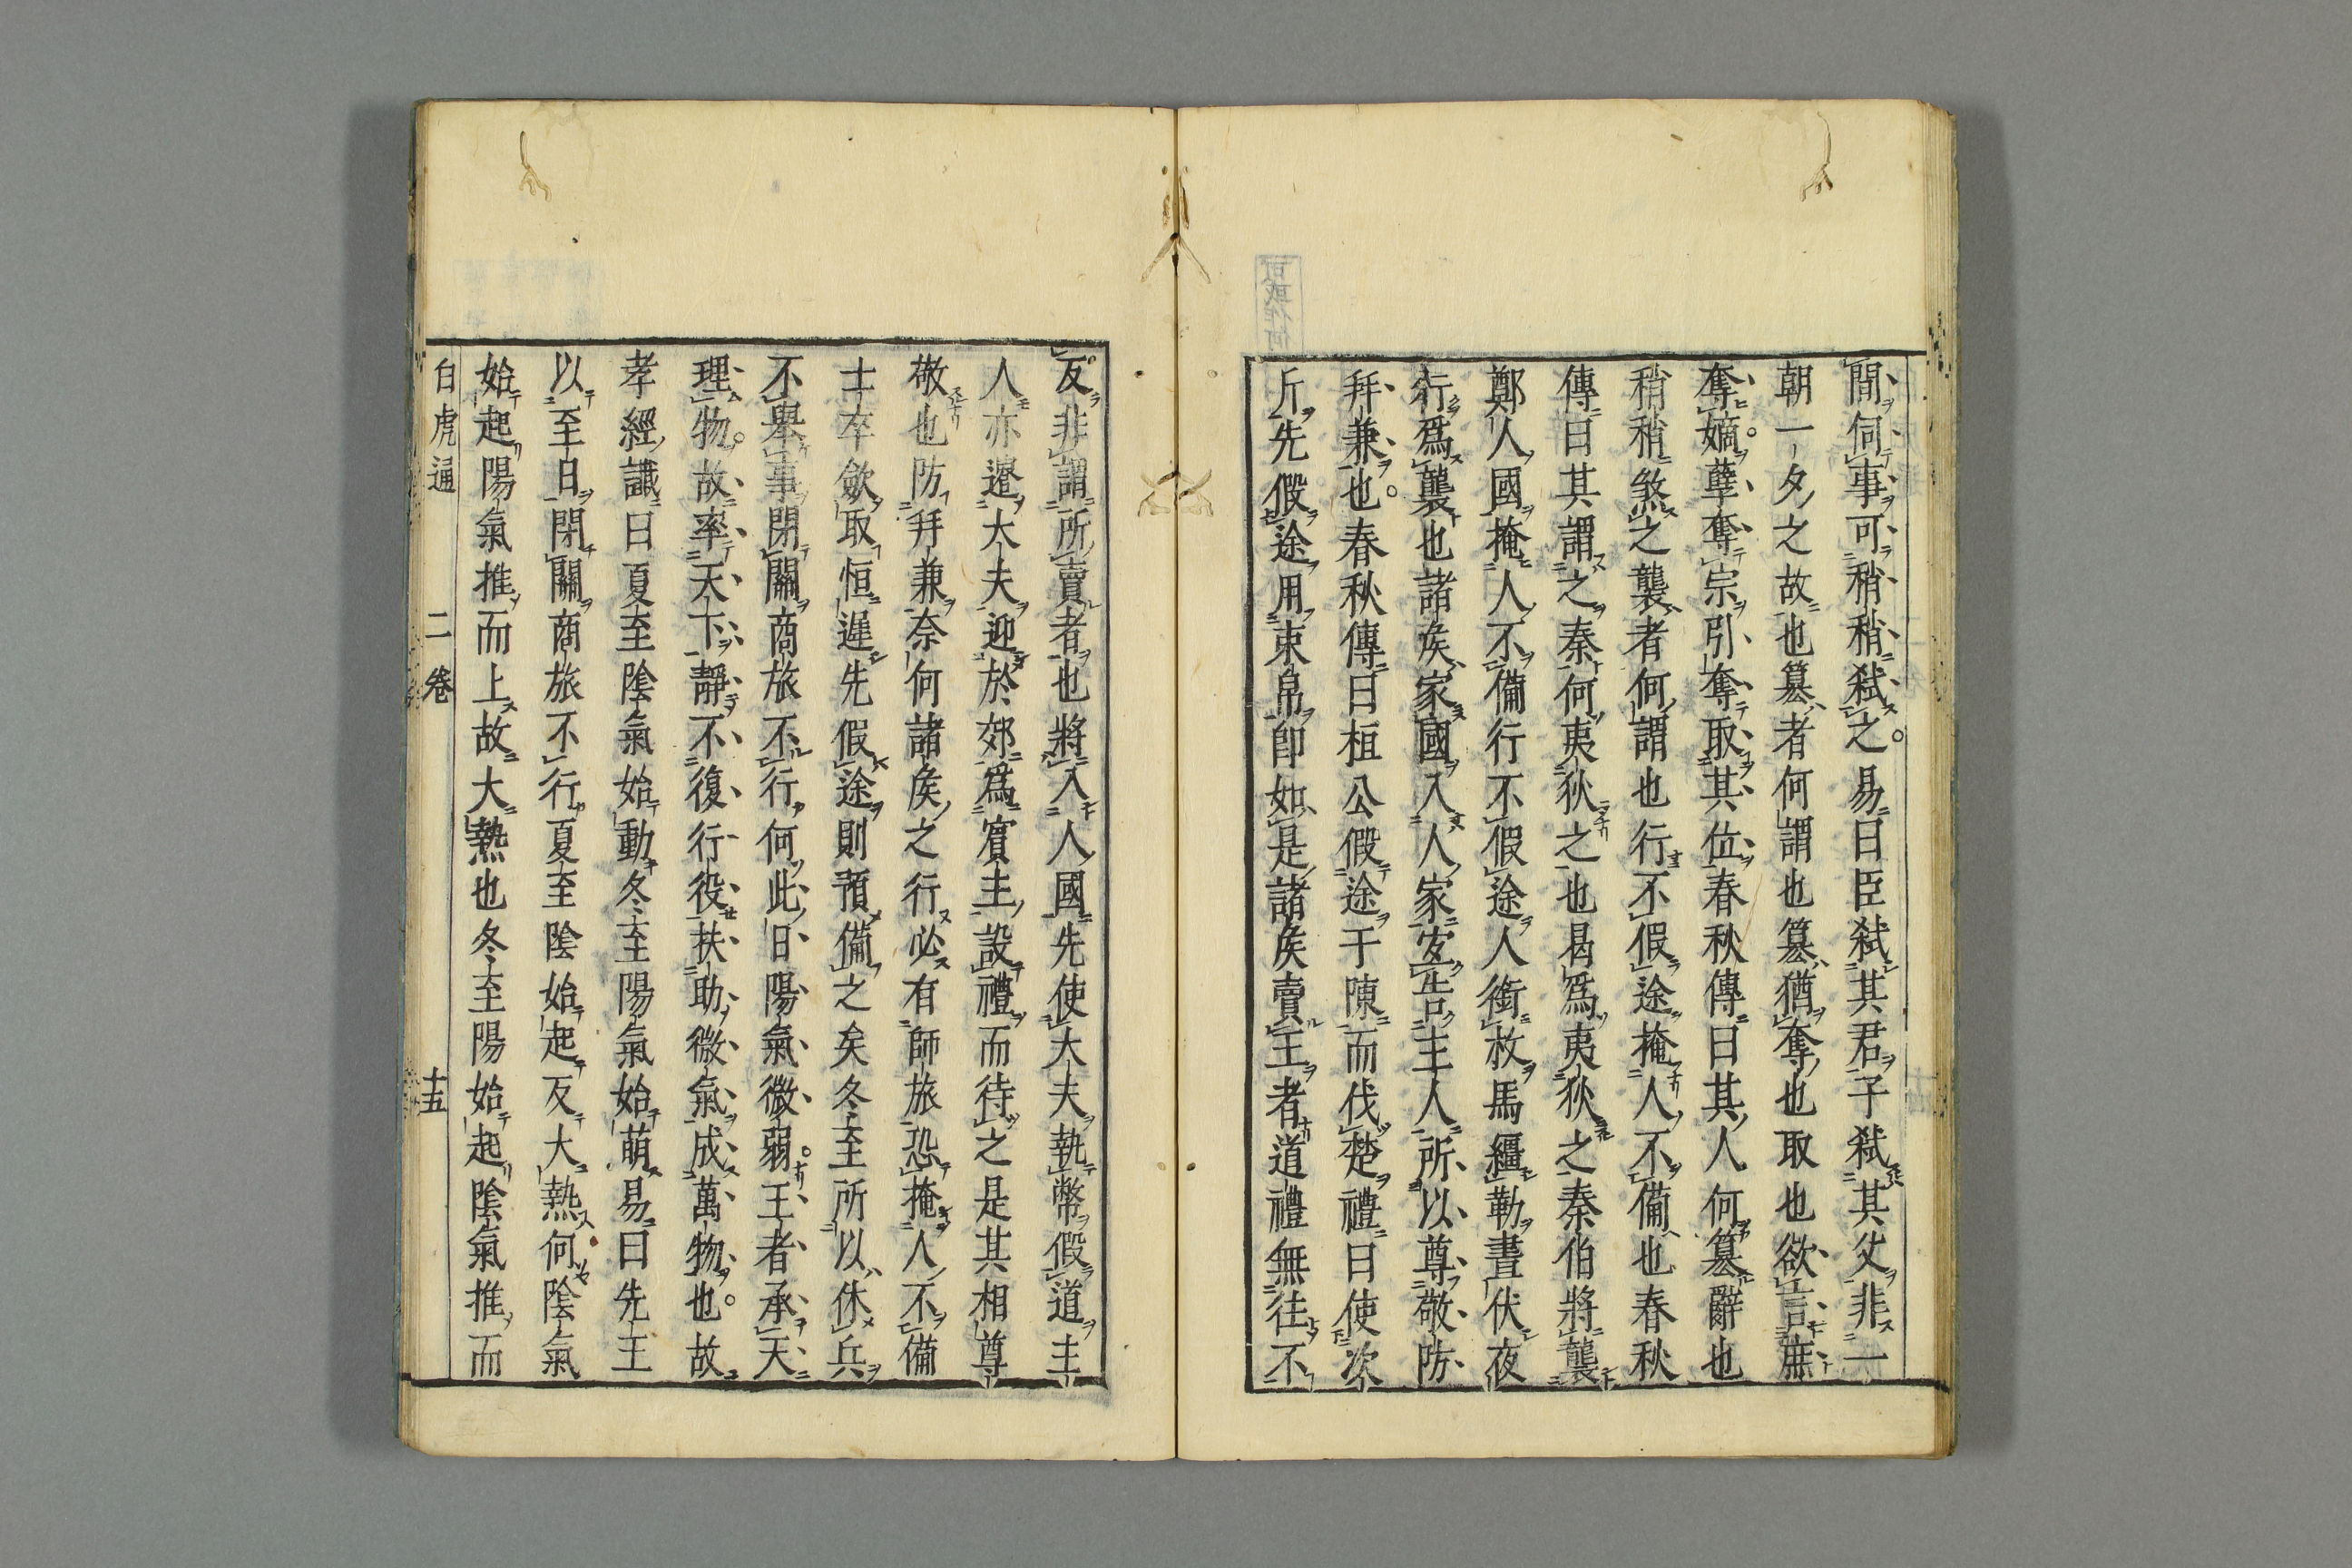 間伺事可稍稍弑之易曰臣弑其君子弑其父非一
朝一夕之故也簒者何謂也簒猶奪也取也欲言庶
奪嫡孽奪宗引奪取其位春秋傳曰其人何簒辭也
稍稍煞之襲者何謂也行不假途掩人不備也春秋
傳曰其謂之秦何夷狄之也曷爲夷狄之秦伯將襲
鄭人國掩人不備行不假途人銜枚馬繮勒晝伏夜
行爲襲也諸矦家國入人家宐告主人所以尊敬防
幷兼也春秋傳曰桓公假途于陳而伐楚禮曰使次
斤先假途用束帛卽如是諸矦賣王者道禮無往不
反非謂所賣者也將入人國先使大夫執幣假道主
人亦遣大夫迎於郊爲賓主設禮而待之是其相尊
敬也防幷兼奈何諸矦之行必有師旅恐掩人不備
士卒歛取恒遲先假途則預備之矣冬至所以休兵
不舉事閉關商旅不行何此日陽氣微弱王者承天
理物故率天下靜不復行役扶助微氣成萬物也故
孝經讖曰夏至陰氣始動冬至陽氣始萌易曰先王
以至日閉關商旅不行夏至陰始起反大熱何陰氣
始起陽氣推而上故大熱也冬至陽始起陰氣推而
白虎通 二卷 十五